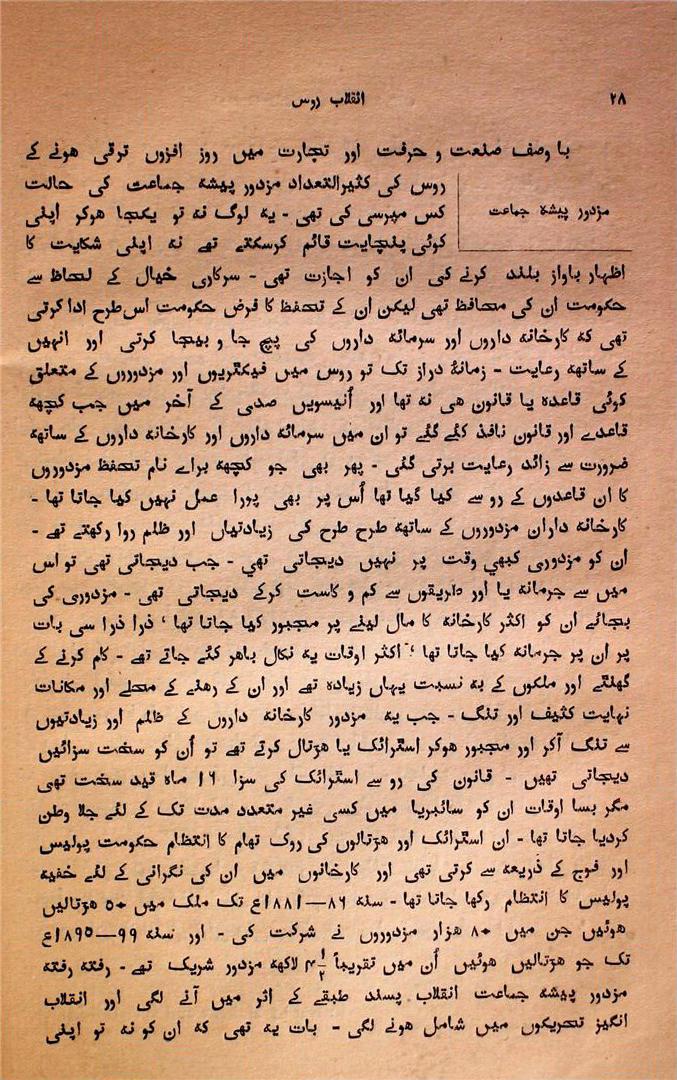 ۲۸
انقلاب روس
با وصف صنعت و حرفت اور تجارت میں روز افزوں ترقی ہونے کے
مزدور پیشہ جماعت
روس کی کثیرالتعداد مزدور پیشہ جماعت کی حالت
کس مپرسی کی تھی - یہ لوگ نہ تو یکجا ہوکر اپنی
کوئی پنچایت قائم کرسکتے تھے نہ اپنی شکایت کا
اظہار بآواز بلند کرنے کی ان کو اجازت تھی - سرکاری خیال کے لحاظ سے
حکومت ان کی محافظ تھی لیکن ان کے تحفظ کا فرض حکومت اس طرح ادا کرتی
تھی کہ کارخانہ داروں اور سرمائہ داروں کی پچ جا و بیجا کرتی اور انہیں
کے ساتھہ رعایت - زمانۂ دراز تک تو روس میں فیکٹریوں اور مزدوروں کے متعلق
کوئی قاعدہ یا قانون ہی نہ تھا اور اُنیسویں صدی کے آخر میں جب کچھہ
قاعدے اور قانون نافذ کئے گئے تو ان میں سرمائہ داروں اور کارخانہ داروں کے ساتھہ
ضرورت سے زائد رعایت برتی گئی - پھر بھی جو کچھہ براے نام تحفظ مزدوروں
کا ان قاعدوں کے رو سے کیا گیا تھا اُس پر بھی پورا عمل نہیں کیا جاتا تھا -
کارخانہ داران مزدوروں کے ساتھہ طرح طرح کی زیادتیاں اور ظلم روا رکھتے تھے -
ان کو مزدوری کبھی وقت پر نہیں دیجاتی تھی - جب دیجاتی تھی تو اس
میں سے جرمانہ یا اور طریقوں سے کم و کاست کرکے دیجاتی تھی - مزدوری کی
بجائے ان کو اکثر کارخانہ کا مال لینے پر مجبور کیا جاتا تھا ‘ ذرا ذرا سی بات
پر ان پر جرمانہ کیا جاتا تھا ‘ اکثر اوقات یہ نکال باہر کئے جاتے تھے - کام کرنے کے
گھنٹے اور ملکوں کے بہ نسبت یہاں زیادہ تھے اور ان کے رہنے کے محلے اور مکانات
نہایت کثیف اور تنگ - جب یہ مزدور کارخانہ داروں کے ظلم اور زیادتیوں
سے تنگ آکر اور مجبور ہوکر اسٹرائک یا ہڑتال کرتے تھے تو اُن کو سخت سزائیں
دیجاتی تھیں - قانون کی رو سے اسٹرائک کی سزا ۱۶ ماہ قید سخت تھی
مگر بسا اوقات ان کو سائبریا میں کسی غیر متعدد مدت تک کے لئے جلا وطن
کردیا جاتا تھا - ان اسٹرائک اور ہڑتالوں کی روک تھام کا انتظام حکومت پولیس
اور فوج کے ذریعہ سے کرتی تھی اور کارخانوں میں ان کی نگرانی کے لئے خفیہ
پولیس کا انتظام رکھا جاتا تھا - سنہ ۸۶—۱۸۸۱ع تک ملک میں ۵۰ ہڑتالیں
ہوئیں جن میں ۸۰ ہزار مزدوروں نے شرکت کی - اور سنہ ۹۹—۱۸۹۵ع
تک جو ہڑتالیں ہوئیں اُن میں تقریباً ۴½ لاکھہ مزدور شریک تھے - رفتہ رفتہ
مزدور پیشہ جماعت انقلاب پسند طبقے کے اثر میں آنے لگی اور انقلاب
انگیز تحریکوں میں شامل ہونے لگی - بات یہ تھی کہ ان کو نہ تو اپنی